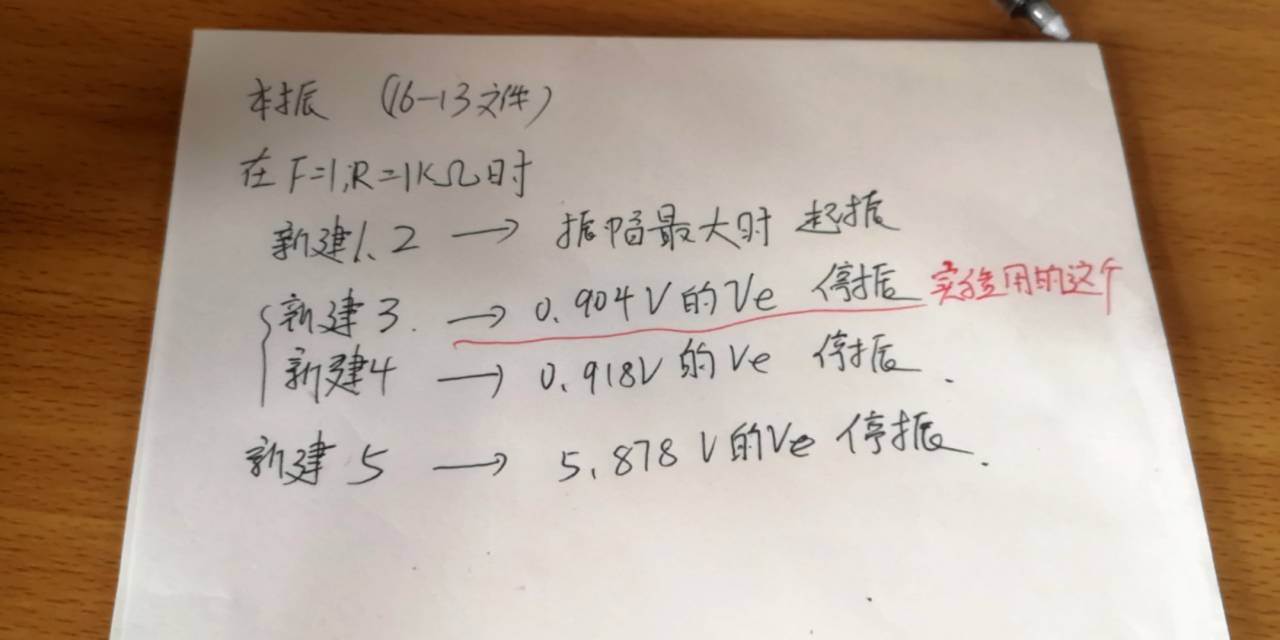 本振 (16-13文件)
在F=1,R=1KΩ时
新建1、2 → 振幅最大时 起振
新建3. → 0.904V的Ve 停振 实验用的这个
新建4 → 0.918V的Ve 停振.
新建5 → 5.878V的Ve 停振.